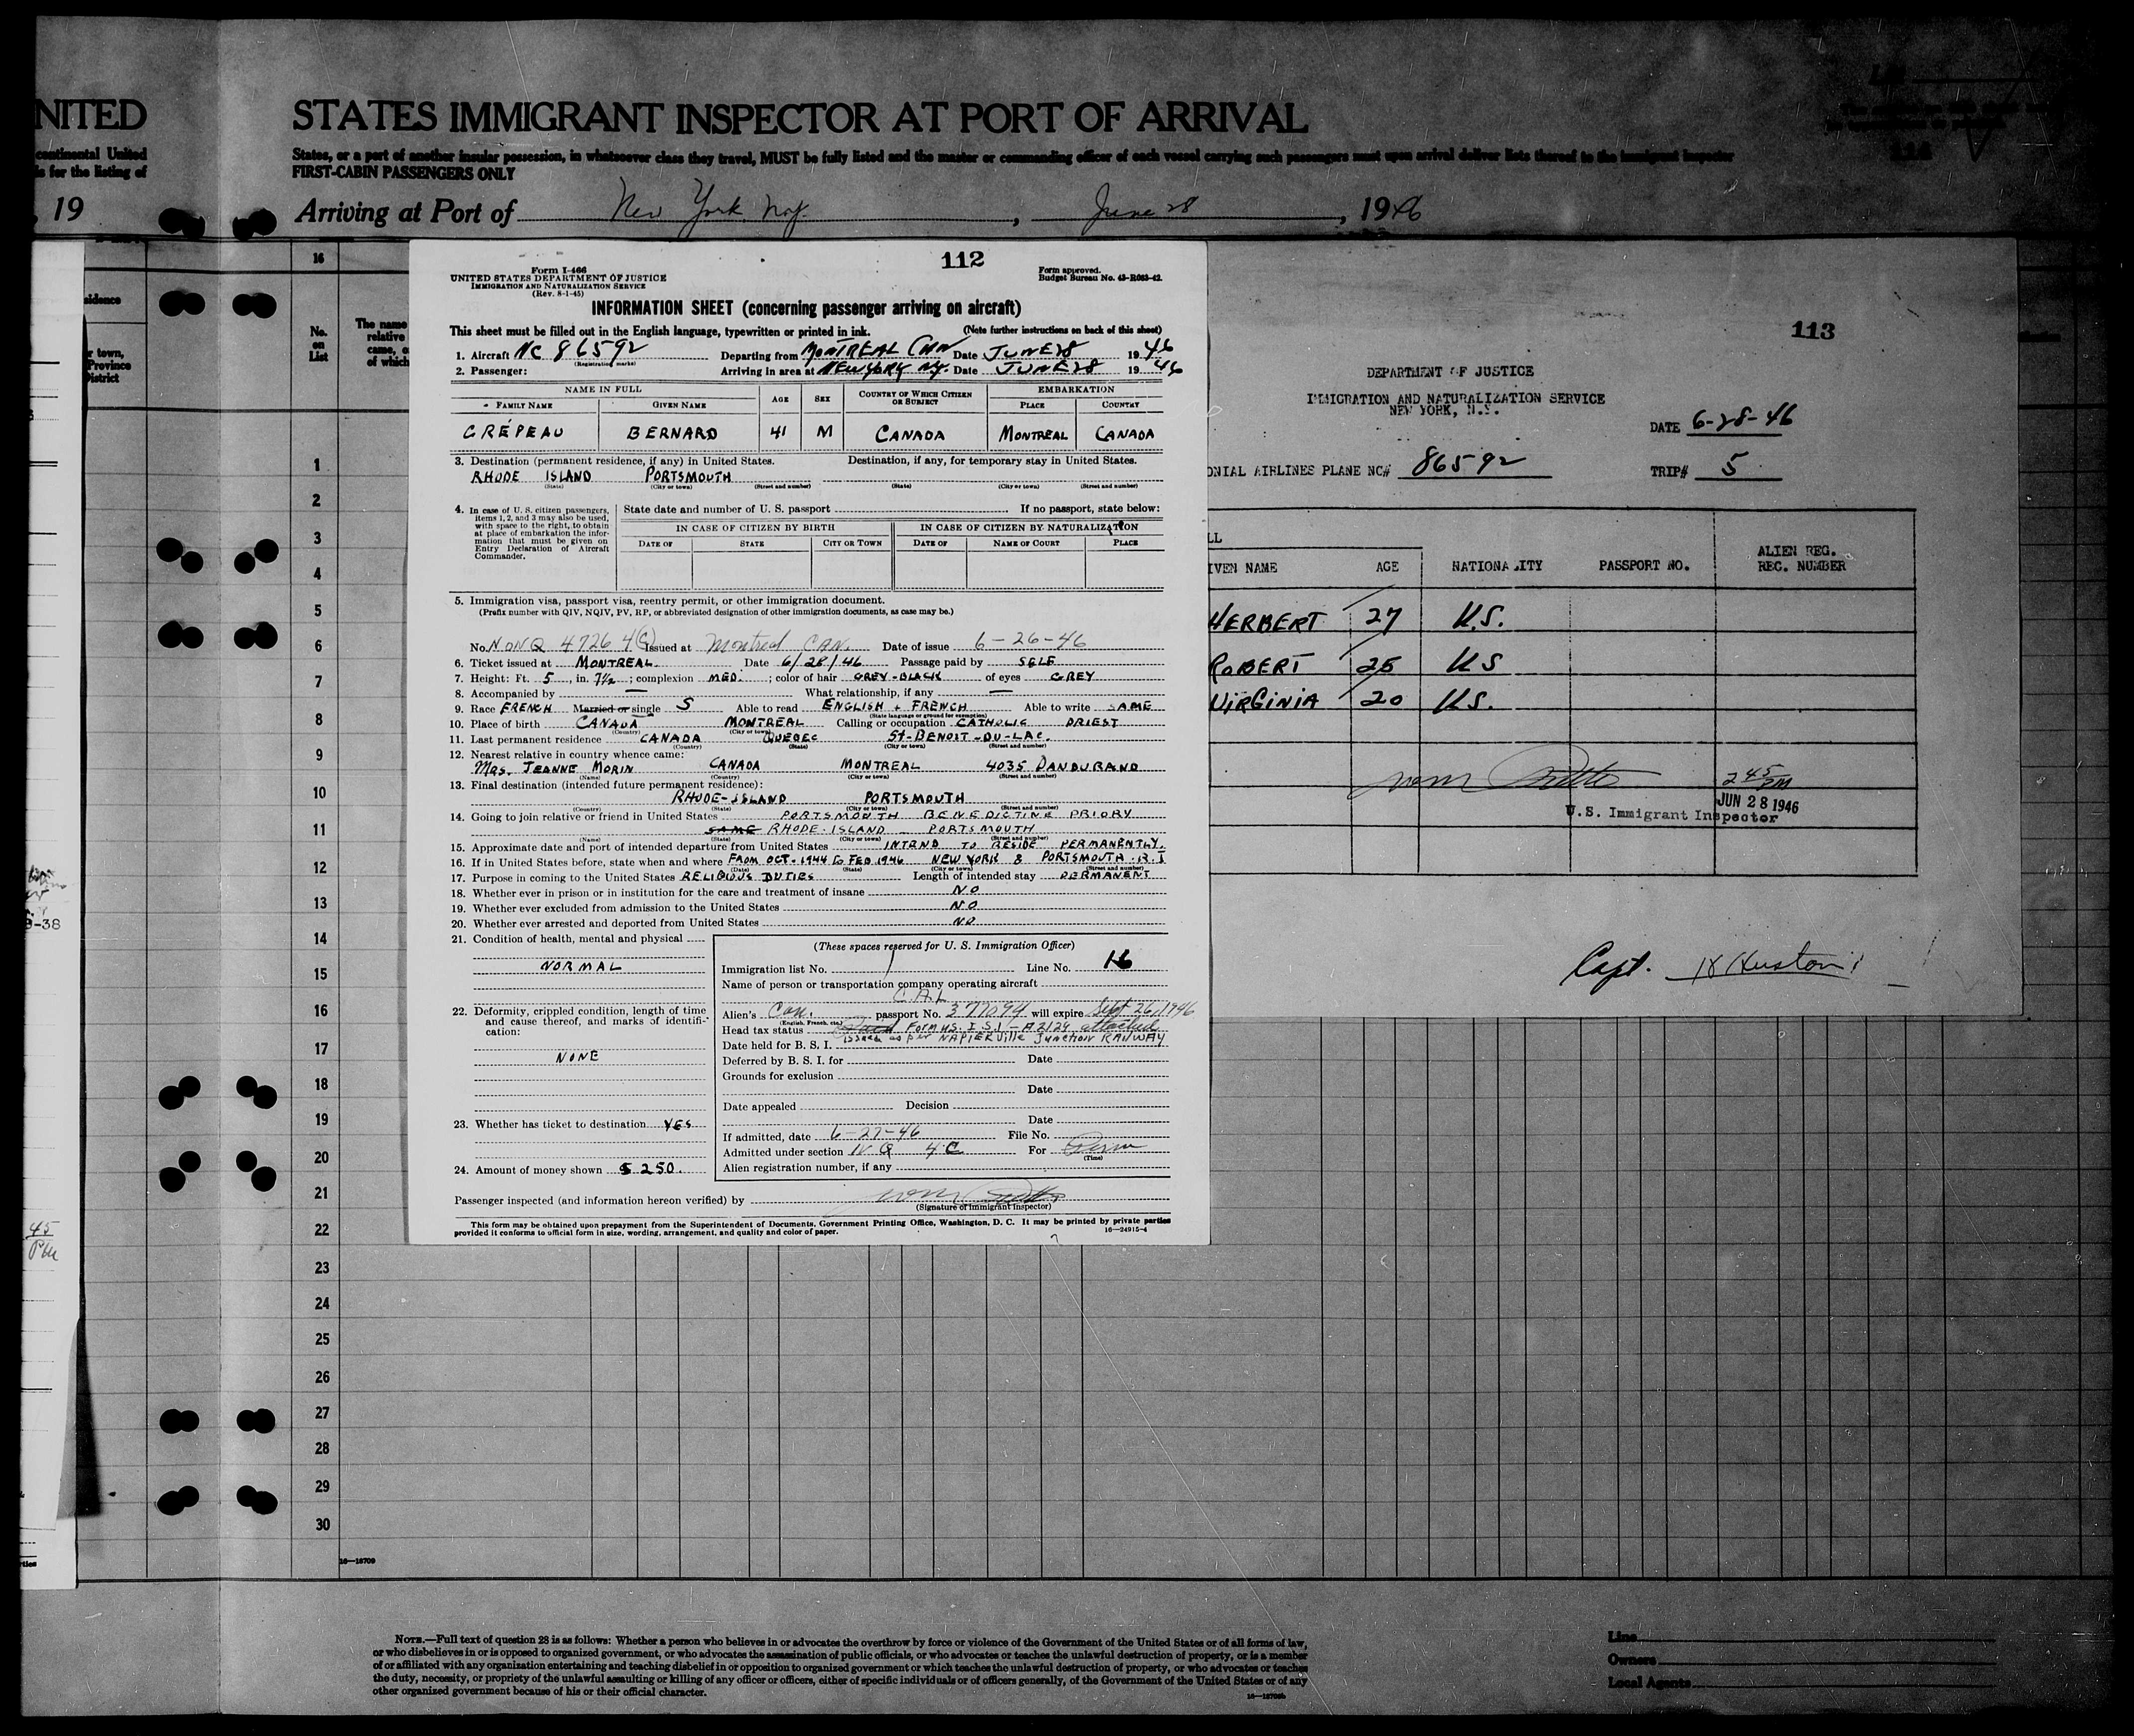 NITED
continental United
is for the listing of
, 19
STATES IMMIGRANT INSPECTOR AT PORT OF ARRIVAL
States, or a part of another insular possession, in whatsoever class they travel, MUST be fully listed and the master or commanding officer of each vessel carrying such passengers must upon arrival deliver lists thereof to the immigrant inspector
FIRST-CABIN PASSENGERS ONLY
Arriving at Port of New York N.Y. , June 28 , 1946
sidence
r town,
Province
District
16
No.
on
List
The name
relative
came, o
of which
112
Form I-466
UNITED STATES DEPARTMENT OF JUSTICE
IMMIGRATION AND NATURALIZATION SERVICE
(Rev. 8-1-45)
Form approved.
Budget Bureau No. 43-R083-42.
INFORMATION SHEET (concerning passenger arriving on aircraft)
This sheet must be filled out in the English language, typewritten or printed in ink. (Note further instructions on back of this sheet)
1. Aircraft NC 86592 Departing from MONTREAL CAN Date JUNE 28 1946
(Registering marks)
2. Passenger: Arriving in area at NEW YORK NY. Date JUNE 28 1946
NAME IN FULL AGE SEX COUNTRY OF WHICH CITIZEN OR SUBJECT EMBARKATION
FAMILY NAME GIVEN NAME PLACE COUNTRY
CRÉPEAU BERNARD 41 M CANADA MONTREAL CANADA
3. Destination (permanent residence, if any) in United States. Destination, if any, for temporary stay in United States.
RHODE ISLAND PORTSMOUTH
(State) (City or town) (Street and number) (State) (City or town) (Street and number)
4. In case of U. S. citizen passengers, items 1, 2, and 3 may also be used, with space to the right, to obtain at place of embarkation the information that must be given on Entry Declaration of Aircraft Commander.
State date and number of U. S. passport If no passport, state below:
IN CASE OF CITIZEN BY BIRTH IN CASE OF CITIZEN BY NATURALIZATION
DATE OF STATE CITY OR TOWN DATE OF NAME OF COURT PLACE
5. Immigration visa, passport visa, reentry permit, or other immigration document.
(Prefix number with QIV, NQIV, PV, RP, or abbreviated designation of other immigration documents, as case may be.)
No. NONQ 4726 4(C) Issued at Montreal CAN. Date of issue 6-26-46
6. Ticket issued at MONTREAL. Date 6/28/46 Passage paid by SELF
7. Height: Ft. 5, in. 7½; complexion MED.; color of hair GREY-BLACK of eyes GREY
8. Accompanied by — What relationship, if any —
9. Race FRENCH Married or single S Able to read ENGLISH + FRENCH Able to write SAME
(State language or ground for exemption)
10. Place of birth CANADA MONTREAL Calling or occupation CATHOLIC PRIEST
(Country) (City or town)
11. Last permanent residence CANADA QUEBEC ST-BENOIT-DU-LAC.
(Country) (State) (City or town) (Street and number)
12. Nearest relative in country whence came:
MRS. JEANNE MORIN CANADA MONTREAL 4035 DANDURAND
(Name) (Country) (City or town) (Street and number)
13. Final destination (intended future permanent residence):
RHODE-ISLAND PORTSMOUTH
(Country) (State) (City or town) (Street and number)
14. Going to join relative or friend in United States PORTSMOUTH BENEDICTINE PRIORY
SAME RHODE-ISLAND PORTSMOUTH
(Name) (State) (City or town) (Street and number)
15. Approximate date and port of intended departure from United States INTEND TO RESIDE PERMANENTLY.
16. If in United States before, state when and where FROM OCT-1944 to FEB 1946 NEW YORK & PORTSMOUTH. R.I
(Date) (State) (City or town) (Street and number)
17. Purpose in coming to the United States RELIGIOUS DUTIES Length of intended stay PERMANENT
18. Whether ever in prison or in institution for the care and treatment of insane NO
19. Whether ever excluded from admission to the United States NO
20. Whether ever arrested and deported from United States NO
21. Condition of health, mental and physical
NORMAL
22. Deformity, crippled condition, length of time and cause thereof, and marks of identification:
NONE
23. Whether has ticket to destination YES
24. Amount of money shown $ 250.
(These spaces reserved for U. S. Immigration Officer)
Immigration list No. Line No. 16
Name of person or transportation company operating aircraft
C.A.L
Alien's Can. passport No. 377094 will expire Sept 26, 1946
(English, French, etc.)
Head tax status FORM I.S.1 - A2129 attached
issued as per NAPIERVille JUNCTION RAILWAY
Date held for B. S. I.
Deferred by B. S. I. for Date
Grounds for exclusion
Date
Date appealed Decision
Date
If admitted, date 6-27-46 File No.
Admitted under section N.Q 4 C For Perm
(Time)
Alien registration number, if any
Passenger inspected (and information hereon verified) by
(Signature of immigrant inspector)
This form may be obtained upon prepayment from the Superintendent of Documents, Government Printing Office, Washington, D. C. It may be printed by private parties
provided it conforms to official form in size, wording, arrangement, and quality and color of paper. 16—24915-4
113
DEPARTMENT OF JUSTICE
IMMIGRATION AND NATURALIZATION SERVICE
NEW YORK, N.Y.
DATE 6-28-46
ONIAL AIRLINES PLANE NC# 86592 TRIP# 5
LL
IVEN NAME AGE NATIONALITY PASSPORT NO. ALIEN REG. REC. NUMBER
HERBERT 27 U.S.
ROBERT 25 US
VIRGINIA 20 U.S.
2 45 PM
JUN 28 1946
U.S. Immigrant Inspector
Capt. Huston
1
2
3
4
5
6
7
8
9
10
11
12
13
14
15
16
17
18
19
20
21
22
23
24
25
26
27
28
29
30
16—18709
-38
45
PM
NOTE.—Full text of question 28 is as follows: Whether a person who believes in or advocates the overthrow by force or violence of the Government of the United States or of all forms of law,
or who disbelieves in or is opposed to organized government, or who advocates the assassination of public officials, or who advocates or teaches the unlawful destruction of property, or is a member
of or affiliated with any organization entertaining and teaching disbelief in or opposition to organized government or which teaches the unlawful destruction of property, or who advocates or teaches
the duty, necessity, or propriety of the unlawful assaulting or killing of any officer or officers, either of specific individuals or of officers generally, of the Government of the United States or of any
other organized government because of his or their official character.
Line
Owners
Local Agents